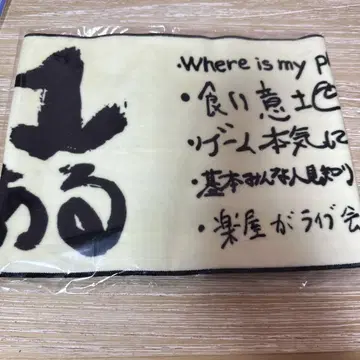 あるある
・Where is my P
・食い意土色
・ゲーム本気にて
・基本みんな人見知り
・楽屋がライブ会